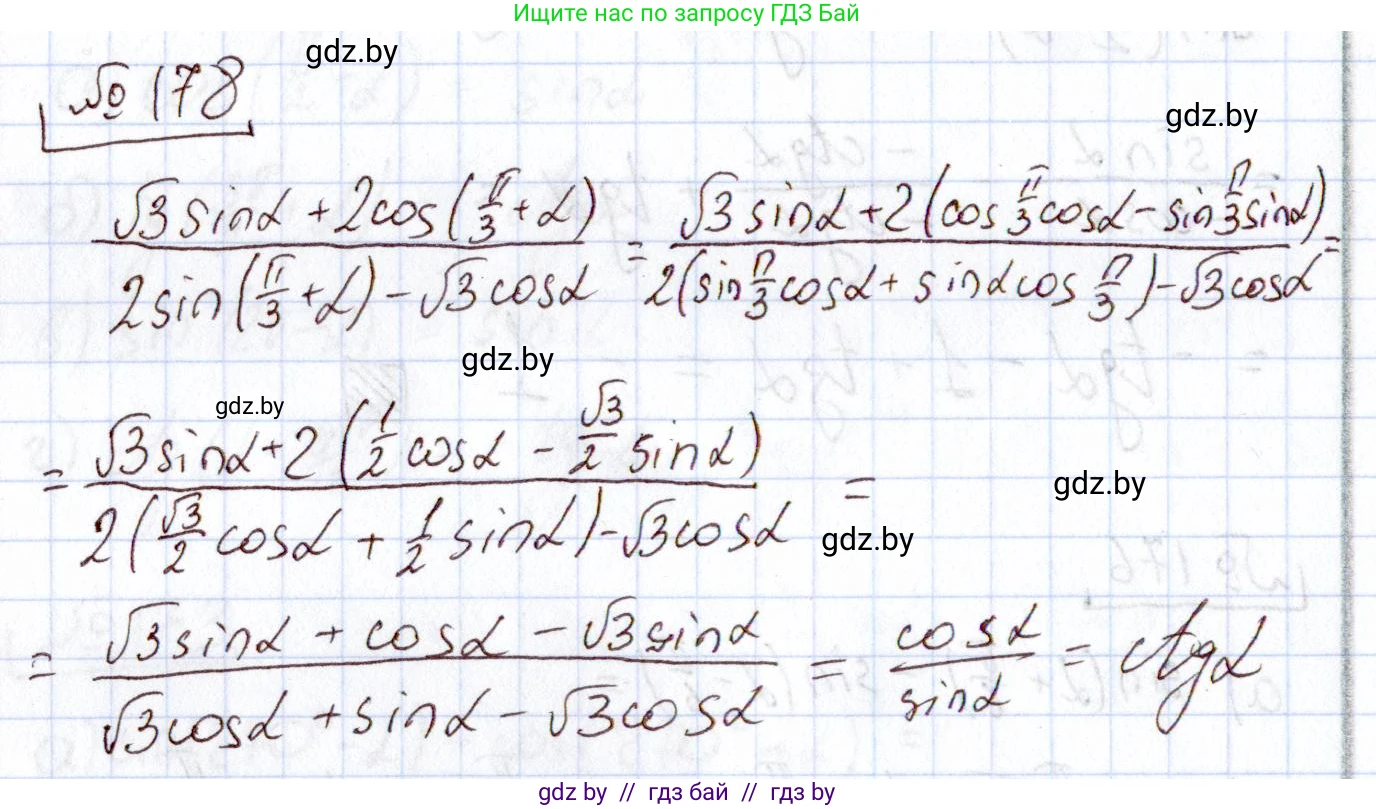 Ищите нас по запросу ГДЗ Бай
gdz.by
№ 178
gdz.by
(√3 sinα + 2cos(π/3 + α)) / (2sin(π/3 + α) - √3 cosα) = (√3 sinα + 2(cos π/3 cosα - sin π/3 sinα)) / (2(sin π/3 cosα + sinα cos π/3) - √3 cosα) =
gdz.by
gdz.by
= (√3 sinα + 2(1/2 cosα - √3/2 sinα)) / (2(√3/2 cosα + 1/2 sinα) - √3 cosα) =
gdz.by
gdz.by
= (√3 sinα + cosα - √3 sinα) / (√3 cosα + sinα - √3 cosα) = cosα / sinα = ctgα
gdz.by // гдз бай // гдз by